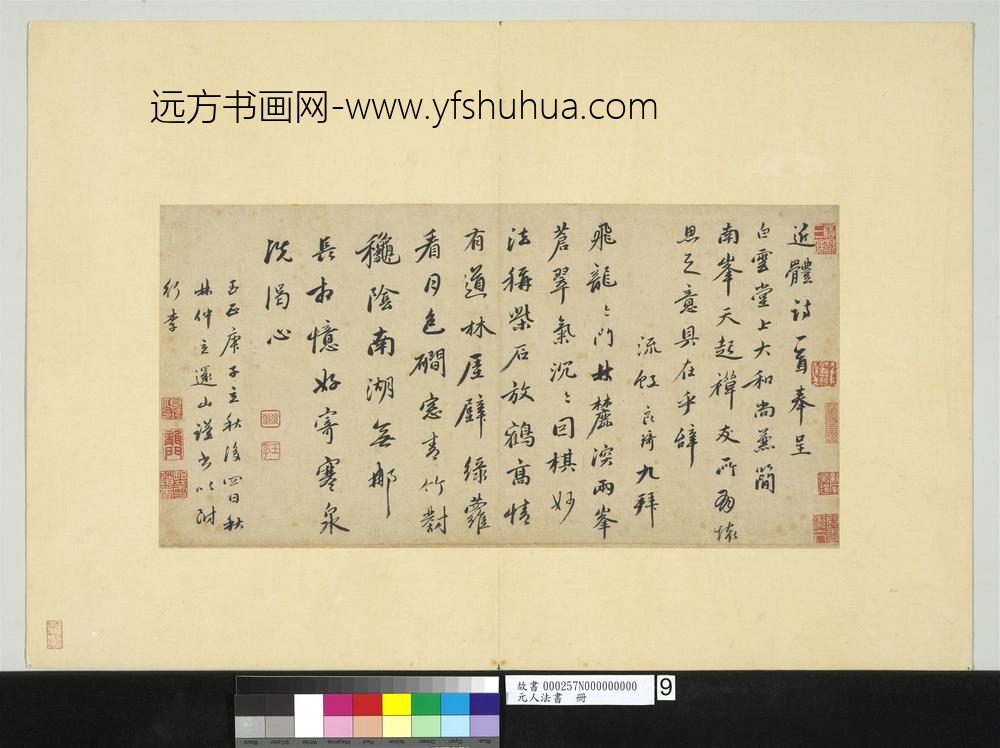 远方书画网-www.yfshuhua.com
近體詩一首奉呈
白雲堂上大和尚兼簡
南峯天起禪友所有懷
思之意具在乎辭
流虹良琦九拜
飛龍〻門林麓深兩峯
蒼翠氣沉〻回棋妙
法稱柴石放鶴高情
有道林厓壁綠蘿
看月色磵窓青竹對
龝陰南湖無那
長相憶好寄寒泉
洗渴心
至正庚子立秋後四日秋
林仲立還山謹書以附
行李
龍門
故書 000257N000000000
元人法書 冊
9
Black
3/Color
White
Magenta
Red
Yellow
Green
Cyan
Blue